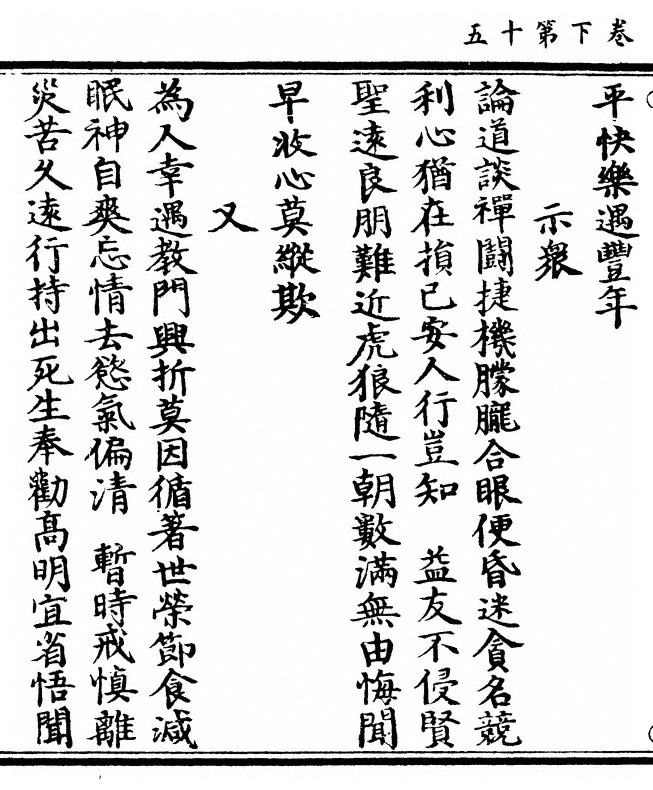 卷下第十五
平快樂遇豐年
示衆
論道談禪鬪捷機朦朧合眼便昏迷貪名競
利心猶在損己安人行豈知　益友不侵賢
聖遠良朋難近虎狼隨一朝數滿無由悔聞
早收心莫縱欺
又
為人幸遇教門興折莫因循著世榮節食減
眠神自爽忘情去慾氣偏清　暫時戒慎離
災苦久遠行持出死生奉勸高明宜省悟聞